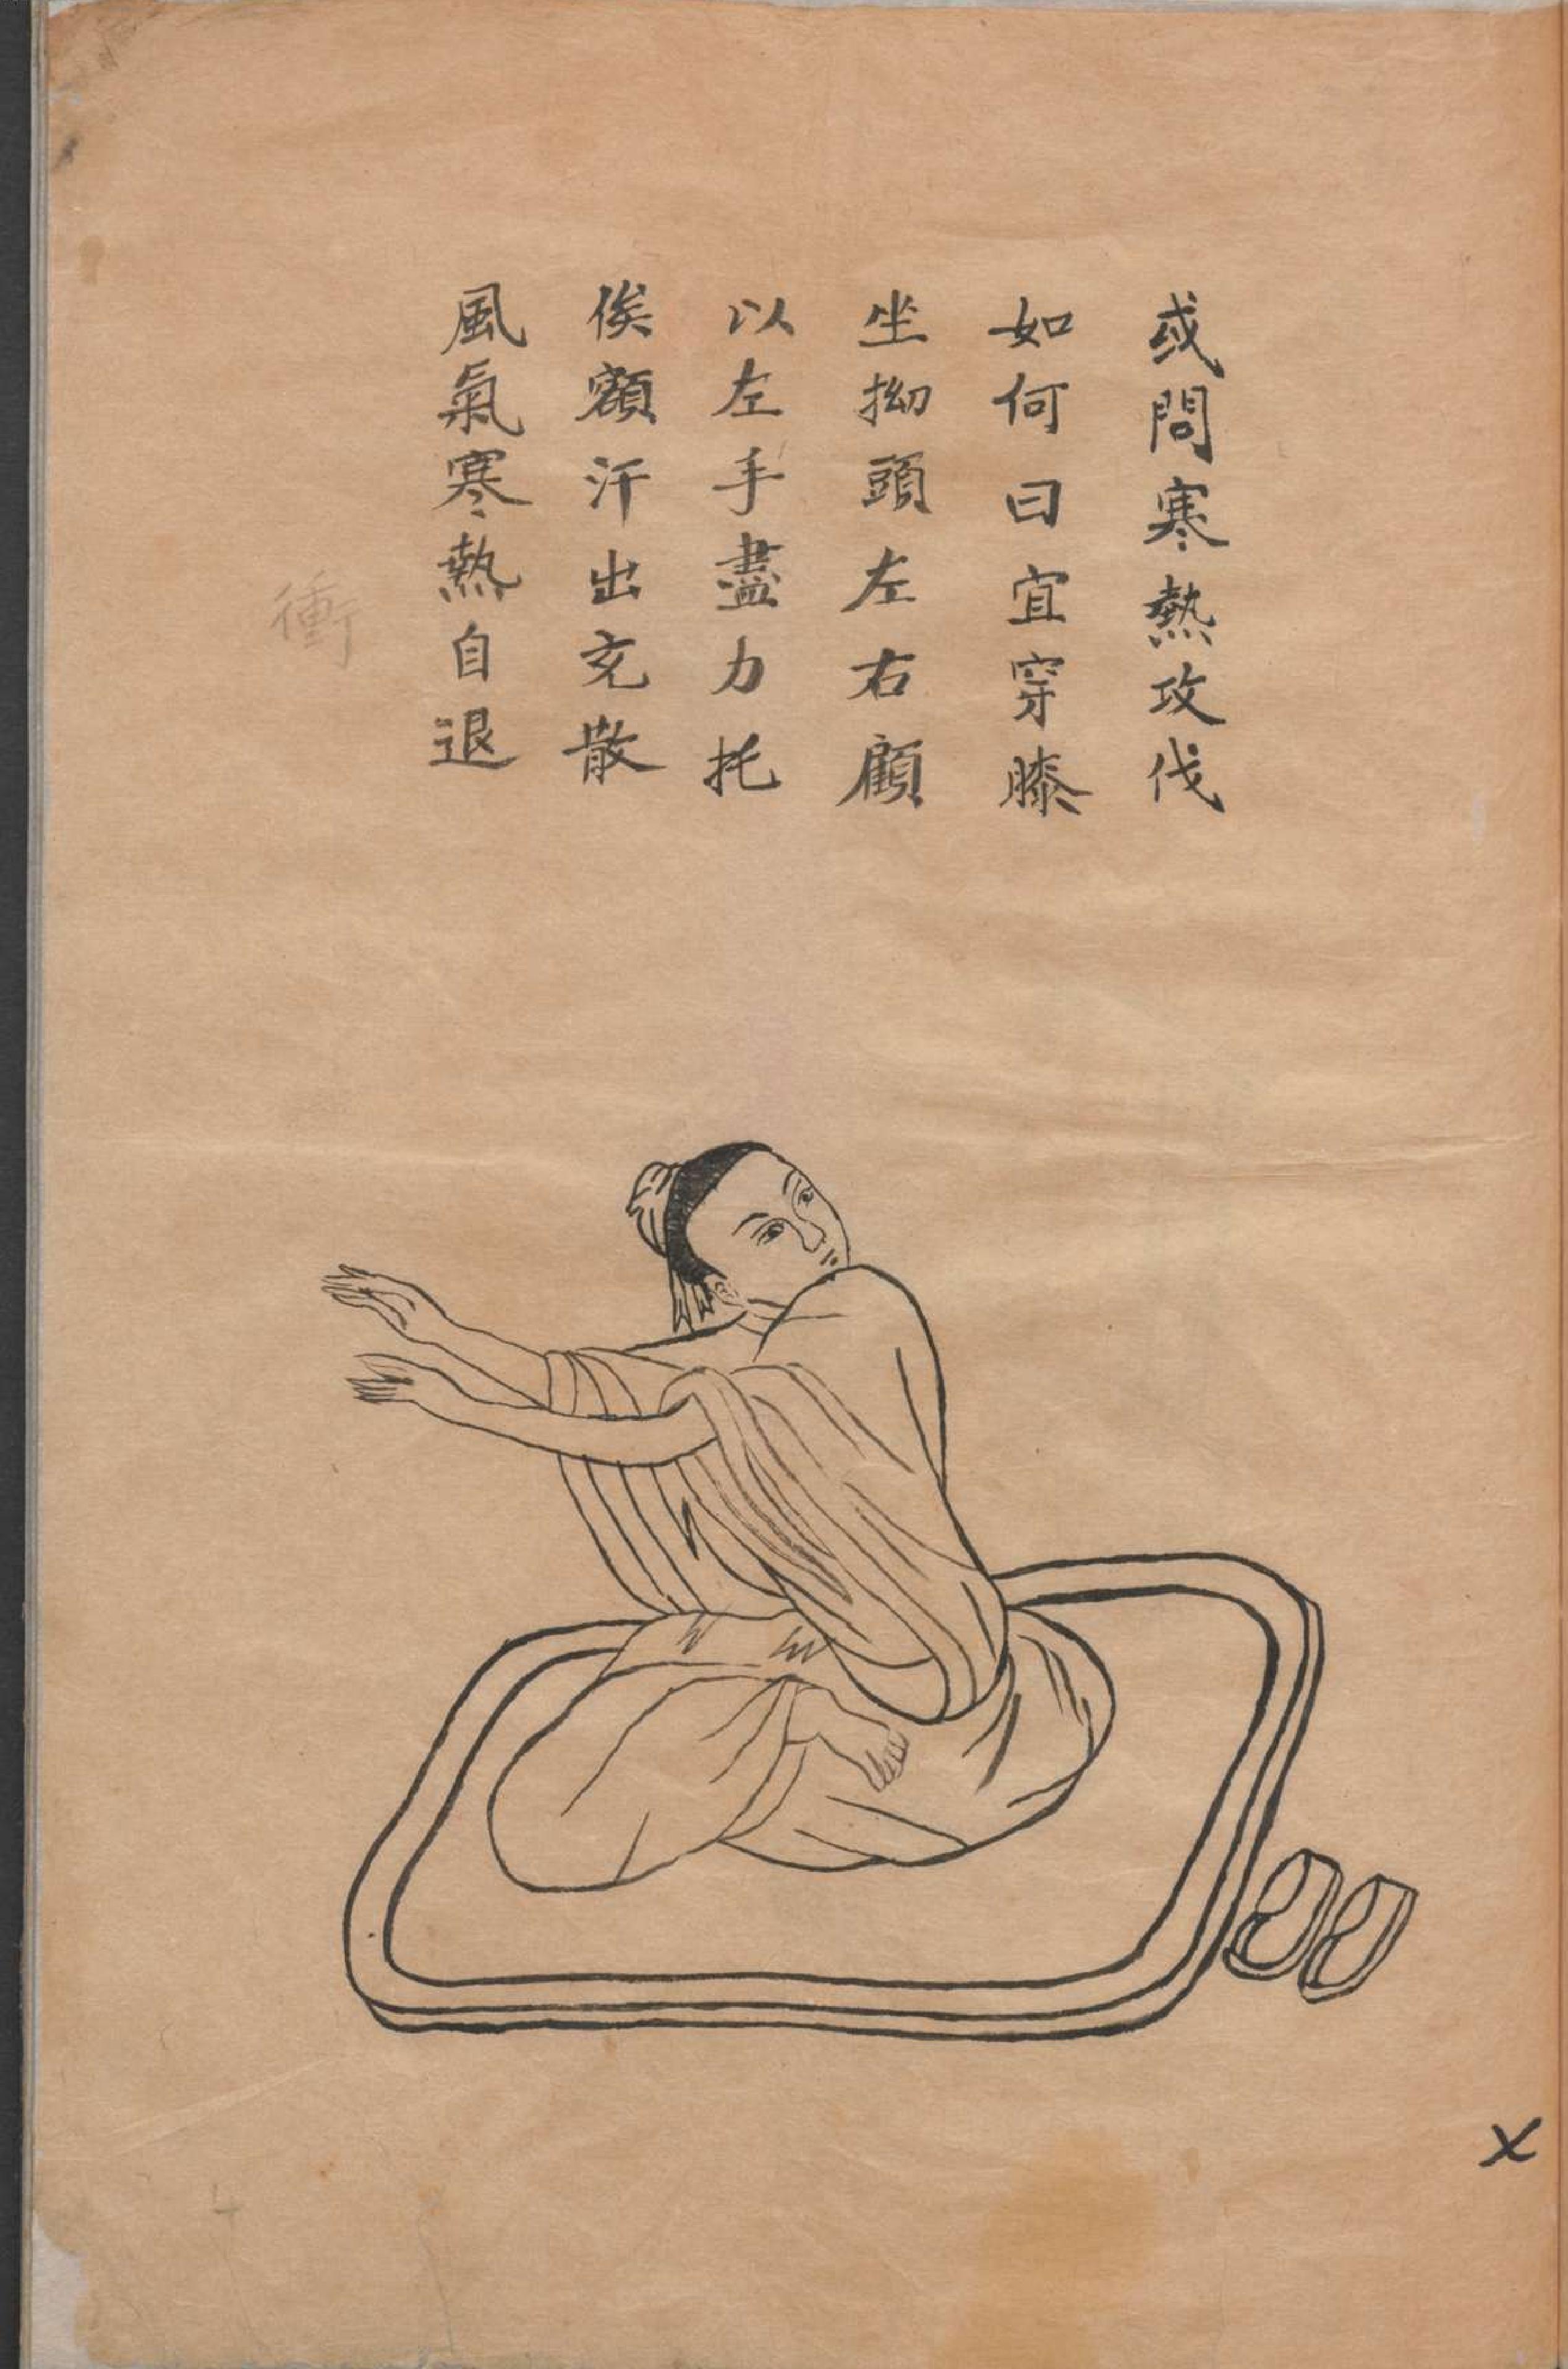 或問寒熱攻伐
如何曰宜穿膝
坐拗頭左右顧
以左手盡力托
俟額汗出充散
風氣寒熱自退
衝